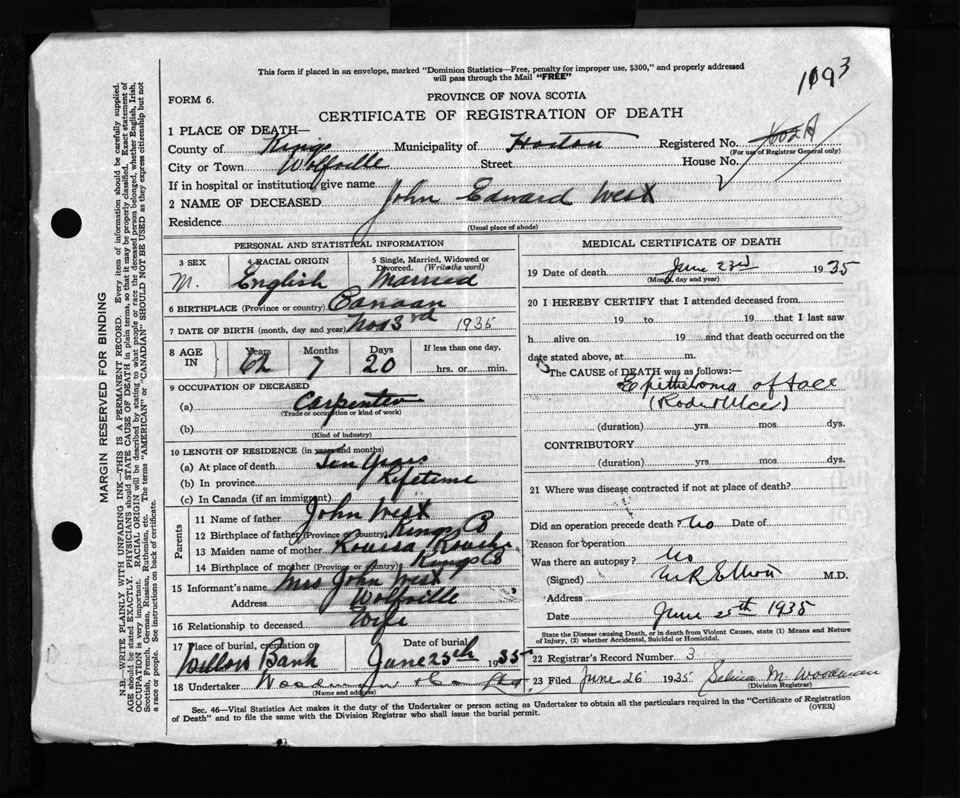 This form if placed in an envelope, marked "Dominion Statistics—Free, penalty for improper use, $300," and properly addressed
will pass through the Mail "FREE"
1093
FORM 6.
PROVINCE OF NOVA SCOTIA
CERTIFICATE OF REGISTRATION OF DEATH
1 PLACE OF DEATH—
County of Kings Municipality of Horton Registered No.
(For use of Registrar General only)
City or Town Wolfville Street House No.
If in hospital or institution, give name
2 NAME OF DECEASED John Edward West
Residence
(Usual place of abode)
PERSONAL AND STATISTICAL INFORMATION
3 SEX 4 RACIAL ORIGIN 5 Single, Married, Widowed or Divorced. (Write the word)
M. English Married
6 BIRTHPLACE (Province or country) Canaan
7 DATE OF BIRTH (month, day and year) Nov 3rd 1935
8 AGE IN Years Months Days If less than one day,
62 7 20 hrs. or min.
9 OCCUPATION OF DECEASED
(a) Carpenter
(Trade or occupation or kind of work)
(b)
(Kind of industry)
10 LENGTH OF RESIDENCE (in years and months)
(a) At place of death Ten Years
(b) In province Lifetime
(c) In Canada (if an immigrant)
Parents
11 Name of father John West
12 Birthplace of father (Province or country) Kings Co
13 Maiden name of mother Louisa
14 Birthplace of mother (Province or country) Kings Co
15 Informant's name Mrs John West
Address Wolfville
16 Relationship to deceased Wife
17 Place of burial, cremation or Date of burial
Willow Bank June 25th 1935
18 Undertaker Woodman & Co Ltd
(Name and address)
MEDICAL CERTIFICATE OF DEATH
19 Date of death June 23rd 1935
(Month, day and year)
20 I HEREBY CERTIFY that I attended deceased from
19 to 19 that I last saw
h alive on 19 and that death occurred on the
date stated above, at m.
The CAUSE of DEATH was as follows:—
Epithelioma of face
(Rodent Ulcer)
(duration) yrs mos dys.
CONTRIBUTORY
(duration) yrs mos dys.
21 Where was disease contracted if not at place of death?
Did an operation precede death? No Date of
Reason for operation
Was there an autopsy? No
(Signed) M R Elliott M.D.
Address
Date June 25th 1935
State the Disease causing Death, or in death from Violent Causes, state (1) Means and Nature
of Injury, (2) whether Accidental, Suicidal or Homicidal.
22 Registrar's Record Number 3
23 Filed June 26 1935 Selina M. Woodman
(Division Registrar)
Sec. 46—Vital Statistics Act makes it the duty of the Undertaker or person acting as Undertaker to obtain all the particulars required in the "Certificate of Registration
of Death" and to file the same with the Division Registrar who shall issue the burial permit.
(OVER)
MARGIN RESERVED FOR BINDING
N.B.—WRITE PLAINLY WITH UNFADING INK—THIS IS A PERMANENT RECORD. Every item of information should be carefully supplied.
AGE should be stated EXACTLY. PHYSICIANS should STATE CAUSE OF DEATH in plain terms, so that it may be properly classified. Exact statement of
OCCUPATION is very important. RACIAL ORIGIN will be described by stating to what people or race the deceased person belonged, whether English, Irish,
Scottish, French, German, Russian, Ruthenian, etc. The terms "AMERICAN" or "CANADIAN" SHOULD NOT BE USED as they express citizenship but not
a race or people. See instructions on back of certificate.